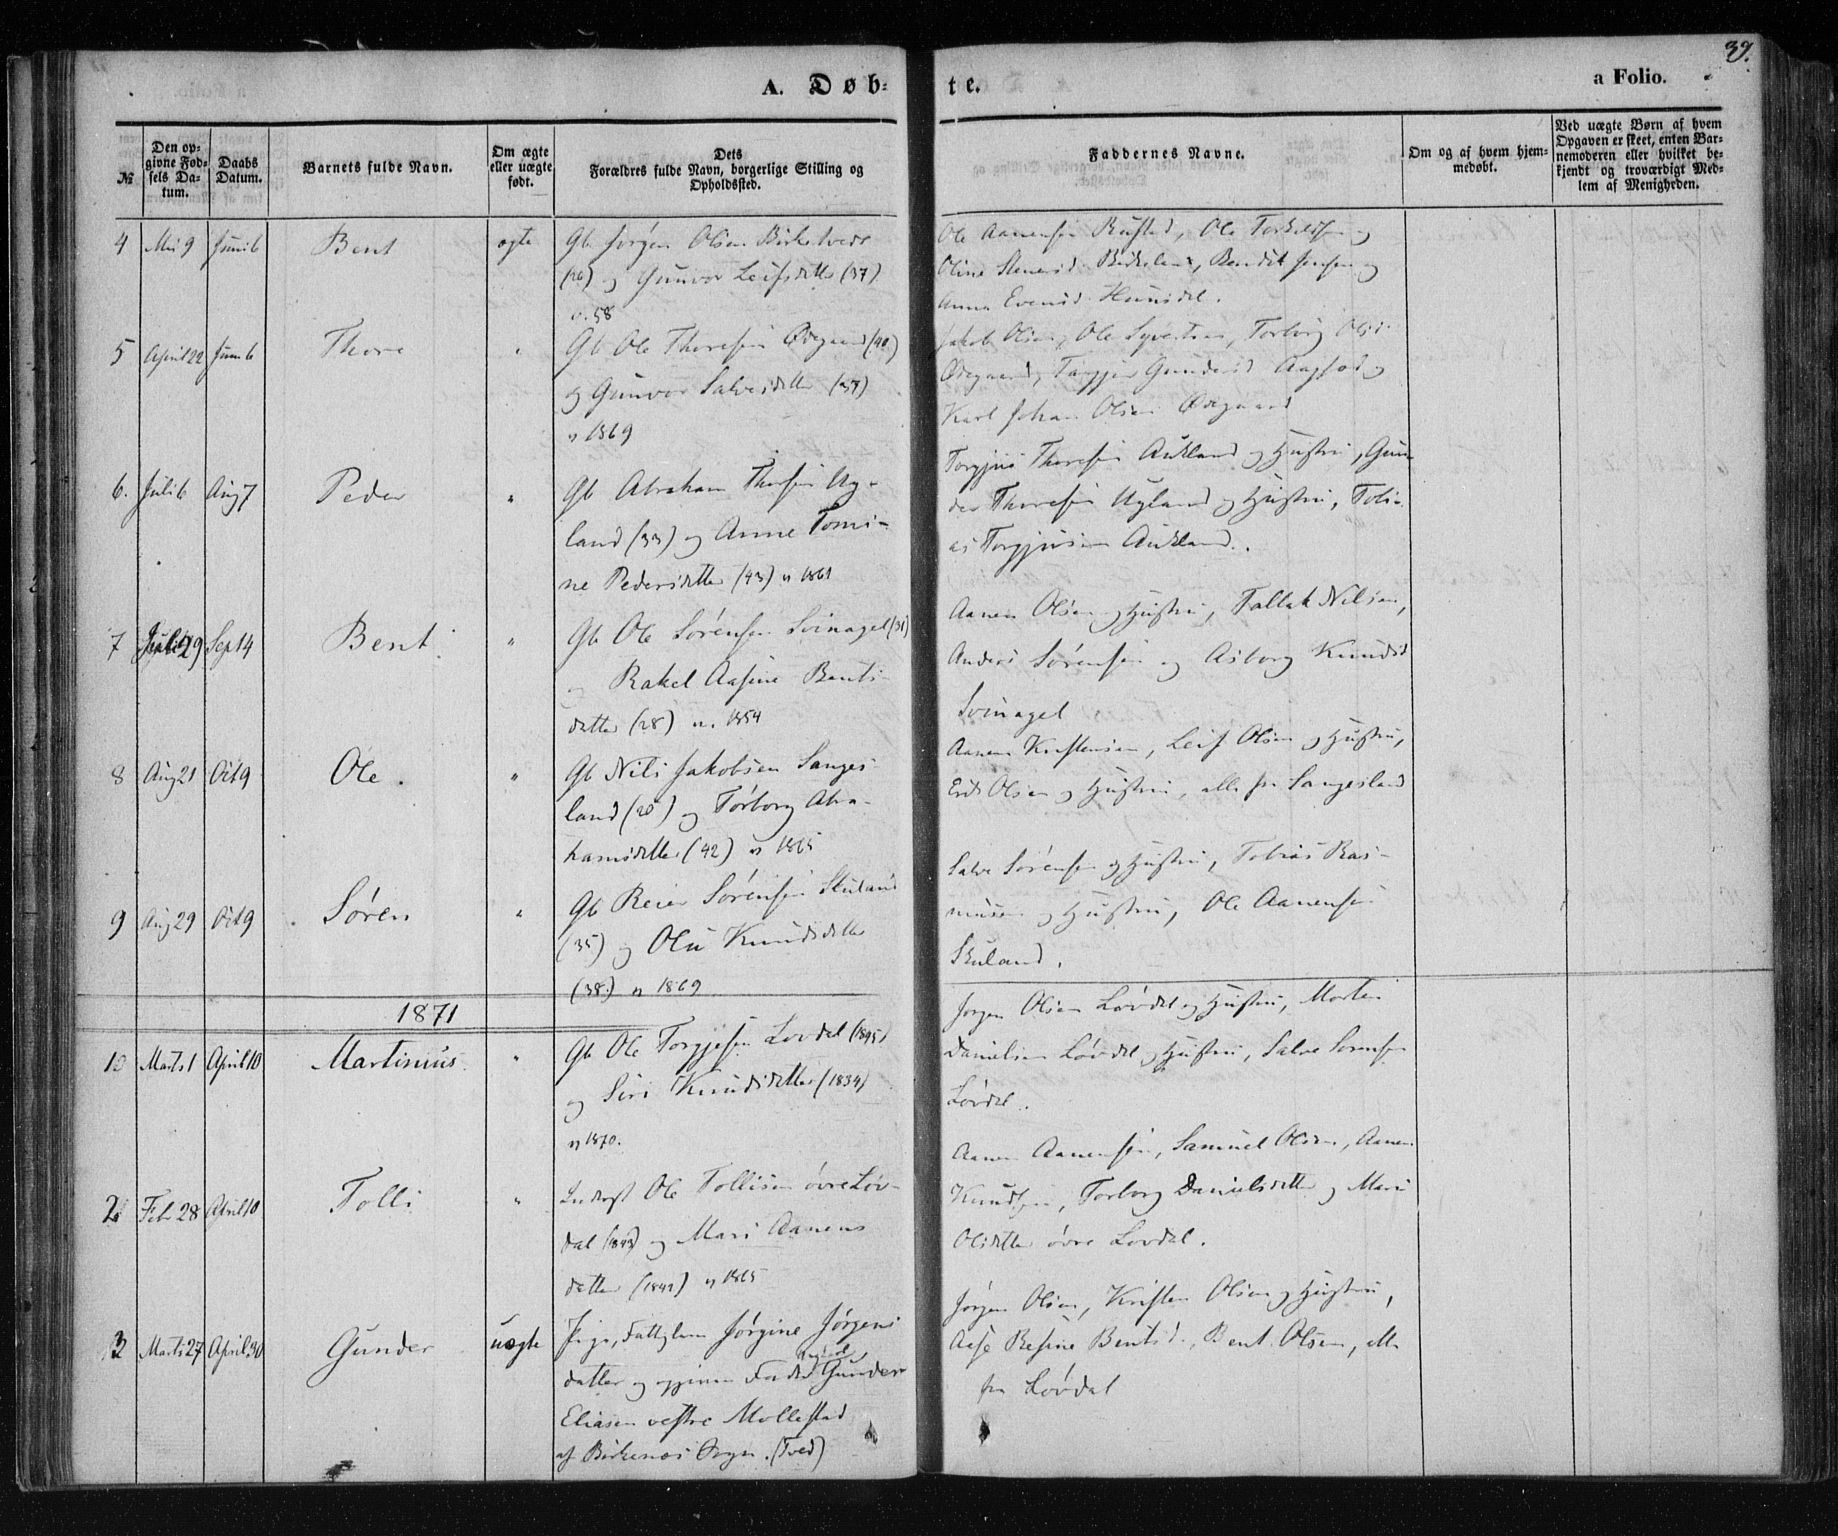 39.
A. Døb-
te.
a Folio.
№
Den op-
givne Fød-
sels Da-
tum.
Daabs
Datum.
Barnets fulde Navn.
Om ægte
eller uægte
født.
Dets
Forældres fulde Navn, borgerlige Stilling og
Opholdssted.
Faddernes Navne.
Om og af hvem hjem-
medøbt.
Ved uægte Børn af hvem
Opgaven er skeet, enten Bar-
nemoderen eller hvilket be-
kjendt og troværdigt Med-
lem af Menigheden.
4 Mai 9 Juni 6 Bent ægte Gb Jørgen Olsen Birketvedt
og Gunvor Leifsdatter (37)
58
Ole Aanensen Rustad, Ole Torkelsen og
Oline Birkeland, Bendik Jensen og
Anna Evensd.
5 April 22 Juni 6 Thore " Gb Ole Thoresen Ødegaard (40)
og Gunvor Salvesdatter (37)
v 1869
Jakob Olsen, Ole Syvertsen, Torborg Olsd
Ødegaard, Gundersd og
Karl Johan Olsen Ødegaard
6. Juli 6 Aug 7 Peder " Gb Abraham Thorsen Ug-
land (33) og Anne Tomi-
ne Pedersdatter (43) v 1861
Torgjus Thoresen Aukland og Hustru, Gun-
der Thoresen Ugland og Hustru, Tobi-
as Torgjusen Aukland.
7 Juli 29 Sept 4 Bent " Gb Ole Sørensen Svinagel (31)
og Rakel Aasine Bents-
datter (28) v. 1854
Aanen Olsen og Hustru, Tallak Nilsen,
Anders Sørensen og Asborg Knudsd
Svinagel
8 Aug 21 Oct 9 Ole. " Gb Nils Jakobsen Sanges-
land (28) og Torborg Abra-
hamsdatter (42) v 1865
Aanen Kristensen, Leif Olsen og Hustru,
Erik Olsen og Hustru, alle fra Sangesland
9 Aug 29 Oct 9 Søren " Gb Reier Sørensen Skuland
(35) og Olu Knudsdatter
(38.) v 1869
Salve Sørensen og Hustru, Tobias Ras-
musen og Hustru, Ole Aanensen
Skuland.
1871
1 Marts 1 April 10 Martinius " Gb Ole Torgjusen Løvdal (1845)
og Siri Knudsdatter (1834)
v 1870.
Jørgen Olsen Løvdal og Hustru, Morten
Danielsen Løvdal og Hustru, Salve Sørensen
Løvdal.
2 Febr 28 April 10 Tolli " Inderst Ole Tollisen øvre Løv-
dal (1843) og Mari Aanens
datter (1842) v 1865
Aanen Aanensen, Samuel Olsen, Aanen
Knudsen, Torborg Danielsdatter og Mari
Olsdatter øvre Løvdal.
3 Marts 27 April 30 Gunder uægte Pige, Fattiglem Jørgine Jørgens
datter og Gunder
Eliasen vestre Mollestad
af Birkenes Sogn. (Tved)
Jørgen Olsen, Kristen Olsen og Hustru,
Aase Resine Bentsd., Bent Olsen, alle
fra Løvdal